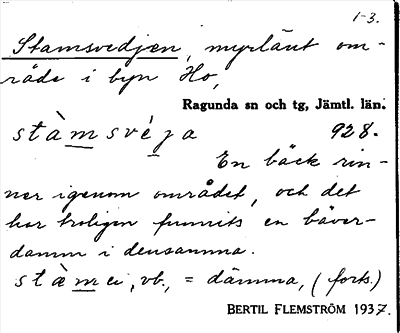 1-3.
Stamsvedjen, myrlänt om-
råde i byn Ho,
Ragunda sn och tg, Jämtl. län.
stàmsvéja 928.
En bäck rin-
ner igenom området, och det
har troligen funnits en bäver-
damm i densamma.
stàmei, vb., = dämma, (forts.)
BERTIL FLEMSTRÖM 1937.